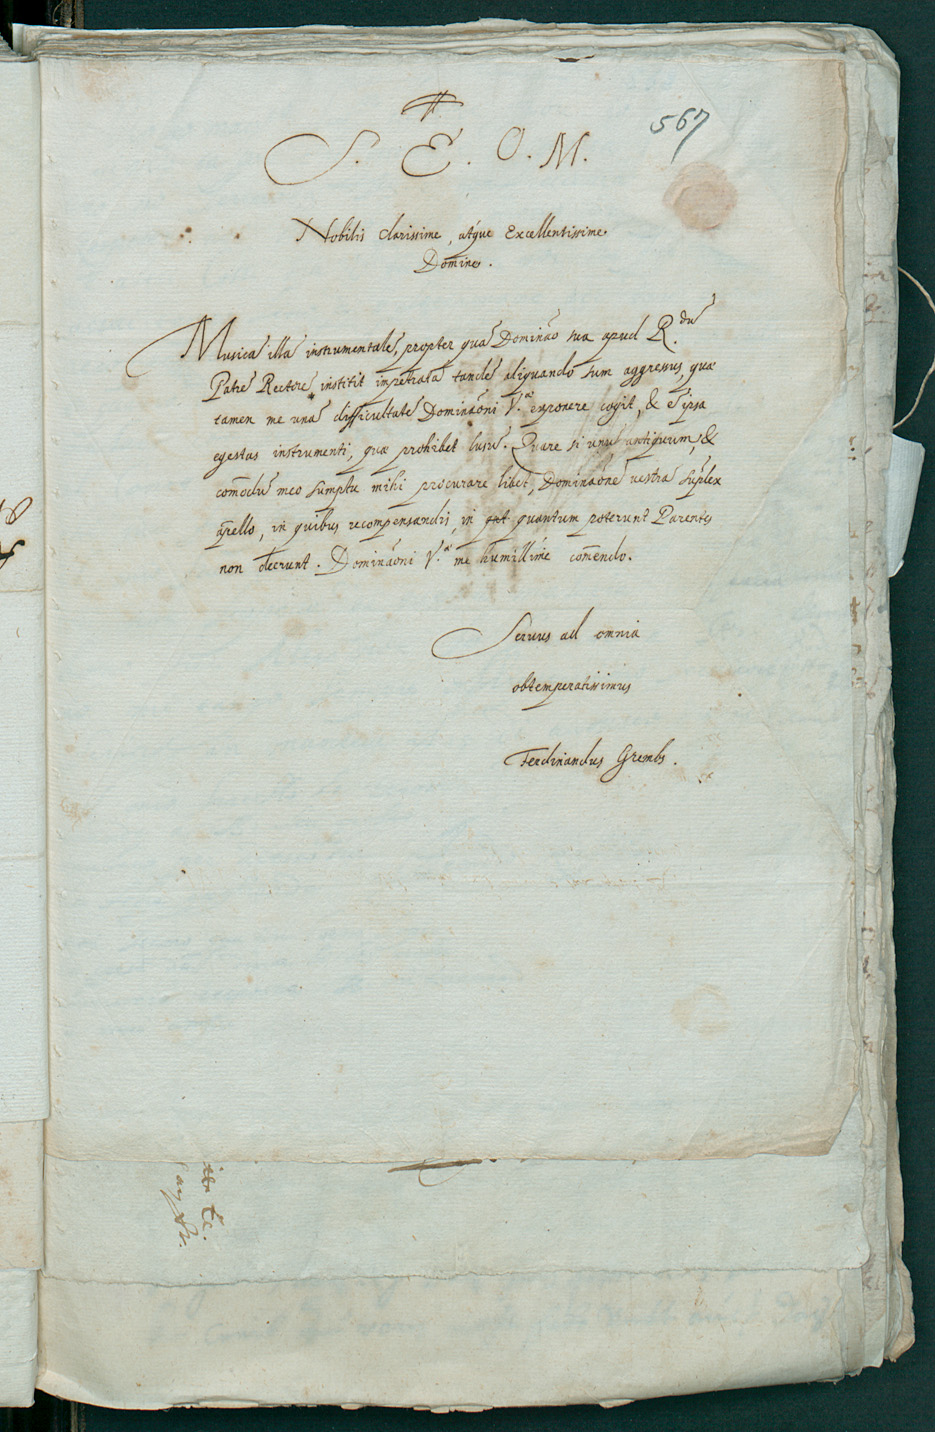 567
S. E. O. M.
Nobilis clarissime, atque Excellentissime
Domine.
Musicã illã instrumentalẽ, propter quã Dominão sua apud R.dũ
Patrẽ Rectorẽ institit impetratã tandẽ aliquando sum aggressus, quæ
tamen me unã difficultatẽ Dominãoni V.æ exponere cogit, & ẽ ipsa
egestas instrumenti, quæ prohibet lusũ. Quare si unũ antiquum, &
com̃odũ meo sumptu mihi procurare libet, Dominãonẽ uestrã supplex
apello, in quibus recompensandis, in quantum poterunt Parentes
non deerunt. Dominãoni V.æ me humillime com̃endo.
Seruus ad omnia
obtemperatissimus
Ferdinandus Grembs.